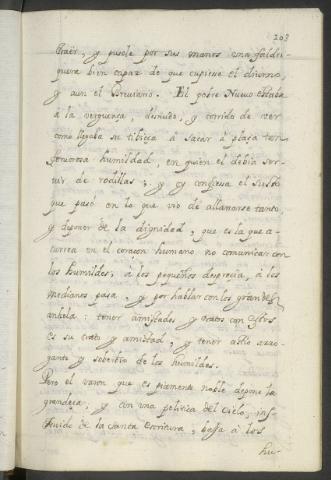 203
traér, y pusole por sus manos una faldri-
quera bien capaz de que cupiese el diurno,
y aun el Breviario. El pobre Nuevo estaba
à la verguenza, desnudo, y corrido de ver
como llegaba su tibieza à sacar à plaza tan
fervorosa humildad, en quien el debia ser-
vir de rodillas; y confiesa el susto
que pasó en lo que vió de allanarse tanto,
y deponer de la dignidad, que es la que a-
carrea en el corazon humano no comunicar con
los humildes; à los pequeños desprecia, à los
medianos pasa, y por hablar con los grandes
anhela: tener amistades y tratos con estos
es su trato y amistad, y tener asco arro-
gante y soberbio de los humildes.
Pero el varon que es piamente noble depone la
grandeza, y con una politica del cielo, ins-
truido de la Santa Escritura, baja à los
hu-